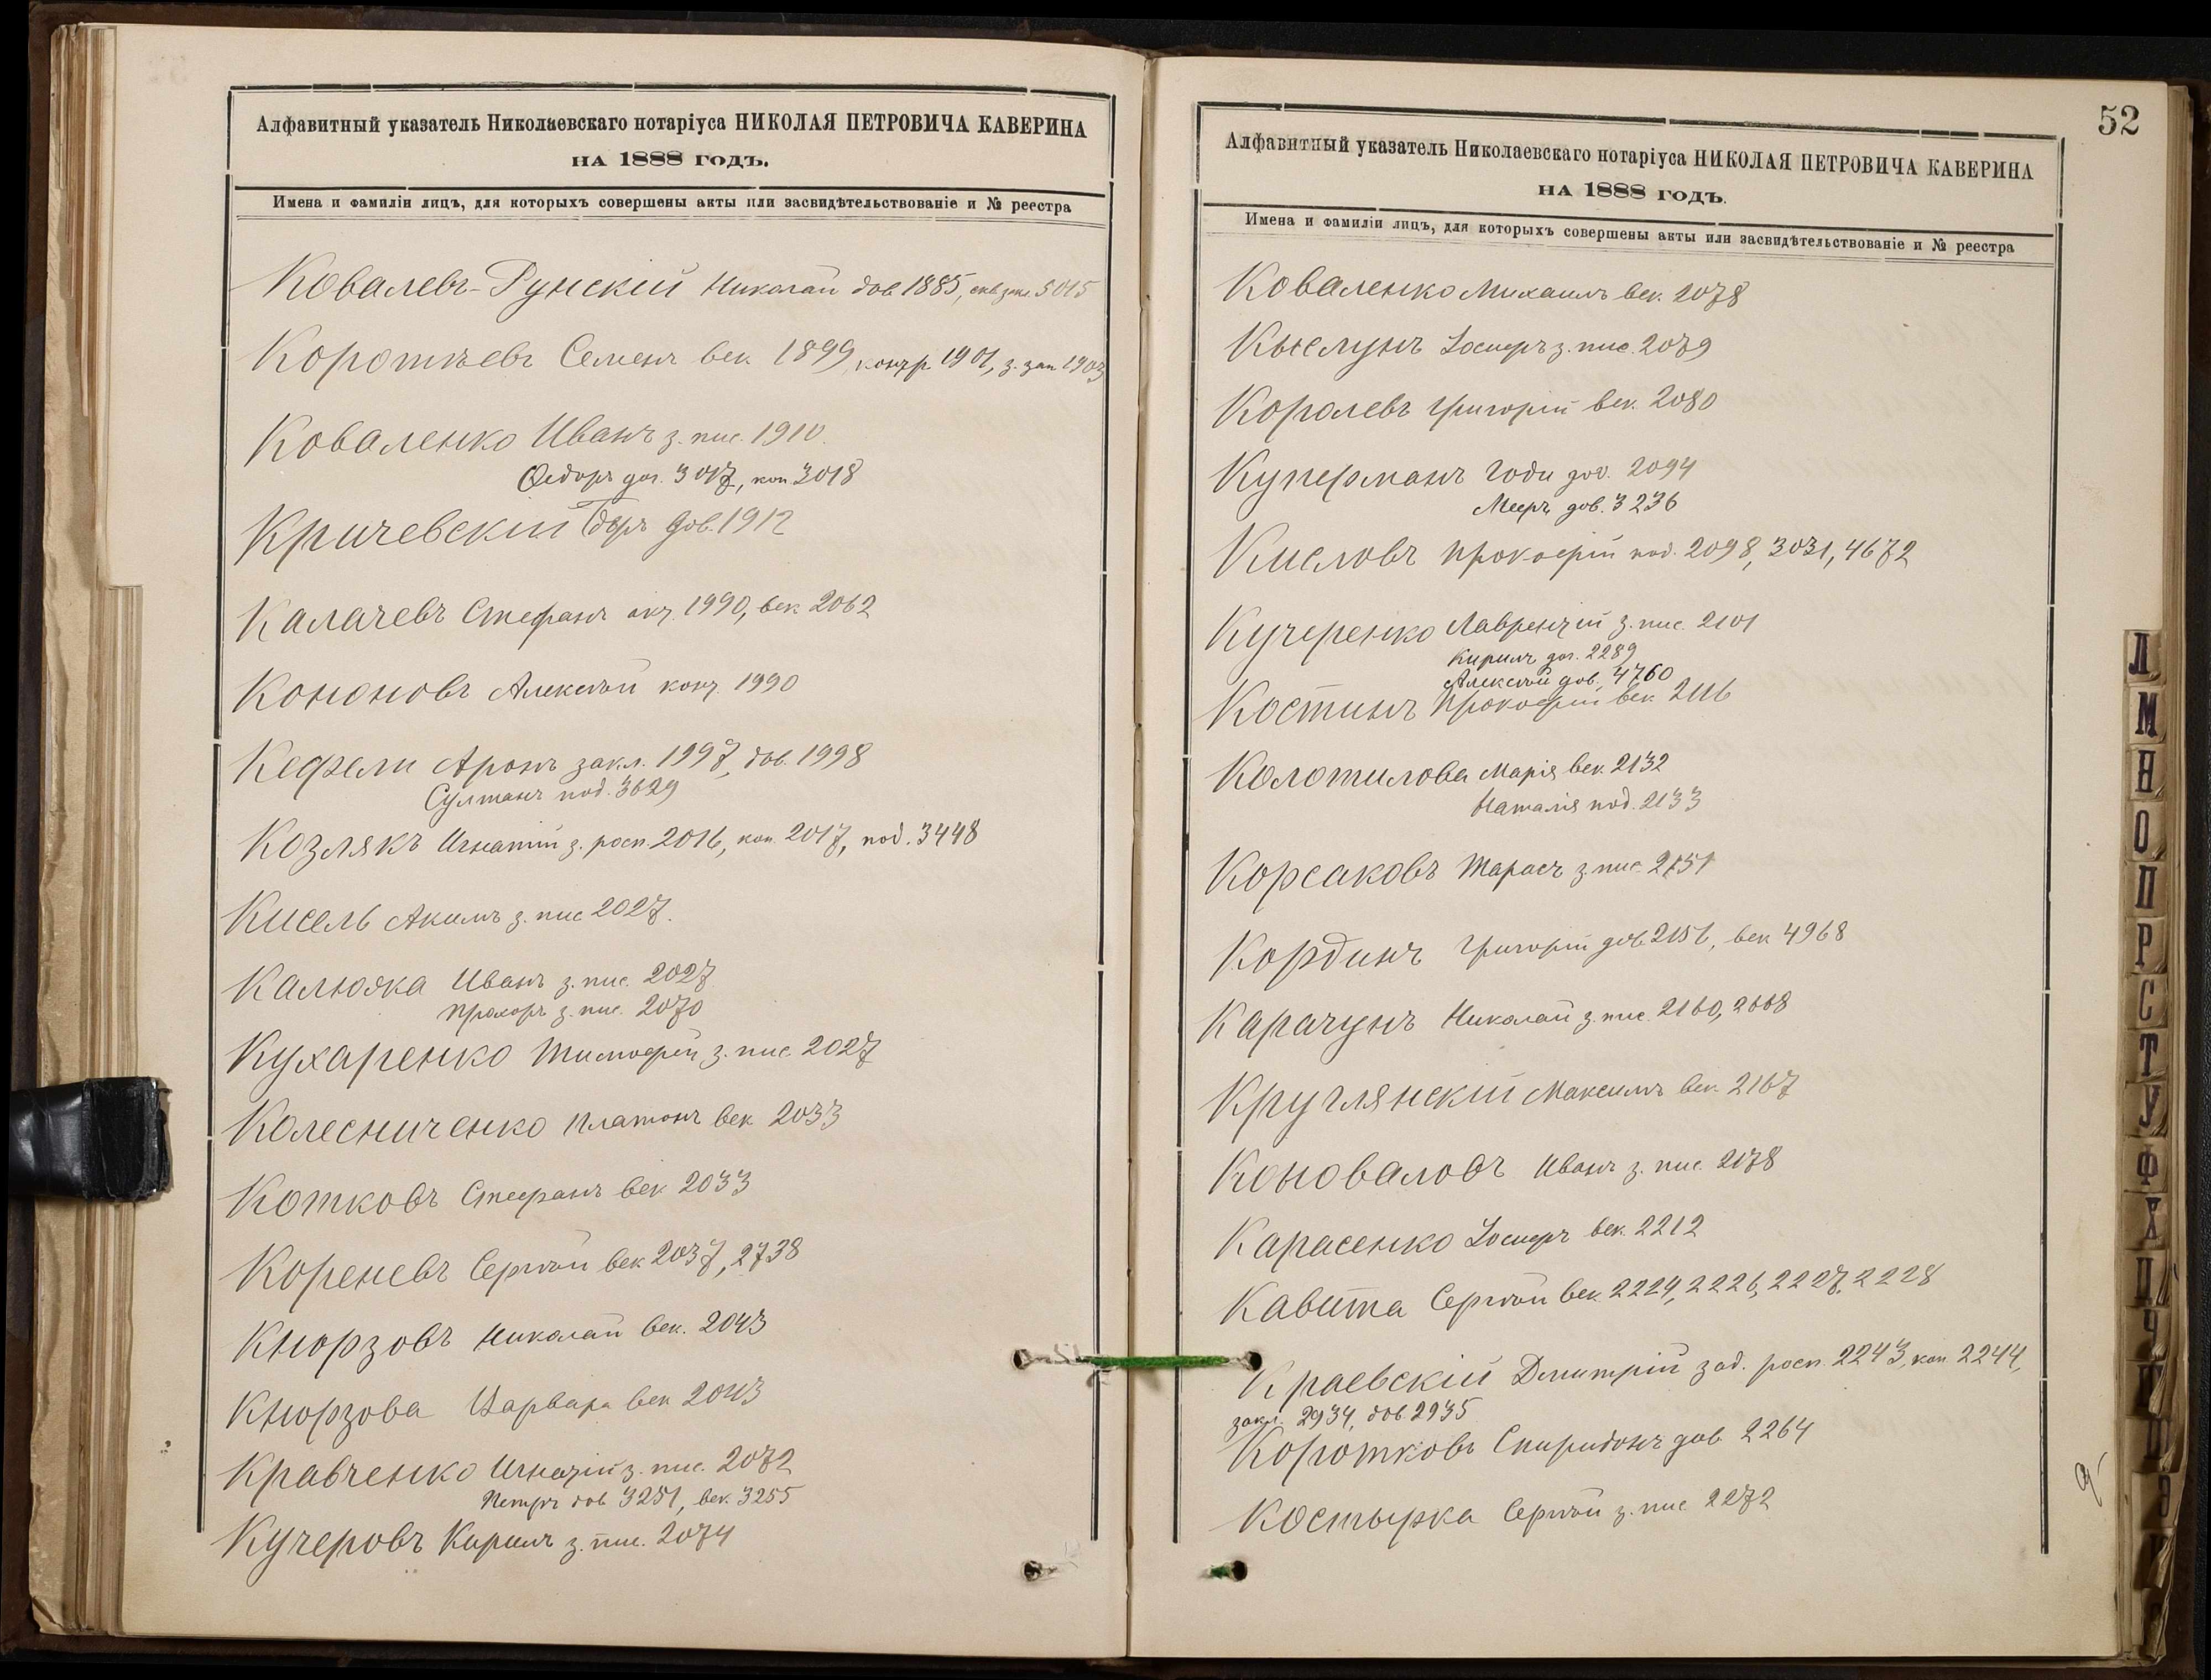 Алфавитный указатель Николаевскаго нотаріуса НИКОЛАЯ ПЕТРОВИЧА КАВЕРИНА
НА 1888 ГОДЪ.
Имена и фамиліи лицъ, для которыхъ совершены акты или засвидѣтельствованіе и № реестра
Ковалевъ-Рунскій Николай дов. 1885, 5015
Семенъ век. 1899, контр. 1901, з. зап 1903
Коваленко Иванъ з. пис. 1910.
Ѳедоръ дог. 3017, коп. 3018
Кричевскій дов. 1912
Калачевъ Стефанъ 1990, век 2062
Кононовъ Алексѣй конт. 1990
Кефели Аронъ закл. 1997, дов. 1998
Султанъ под. 3629
Козлякъ Игнатій з. росп. 2016, коп. 2017, под. 3448
Кисель Акимъ з. пис 2027.
Калюжка Иванъ з. пис. 2027
Прохоръ з. пис. 2070
Кухаренко Тимофей з. пис. 2027
Колесниченко Платонъ век 2033
Котковъ Стефанъ век 2033
Кореневъ Сергѣй век 2037, 2738
Кнорзовъ Николай век. 2043
Кнорзова Варвара век 2043
Кравченко Игнатій з. пис. 2072
Петръ дов 3251, век. 3255
Кучеровъ Кирилъ з. пис. 2074
52
Алфавитный указатель Николаевскаго нотаріуса НИКОЛАЯ ПЕТРОВИЧА КАВЕРИНА
НА 1888 ГОДЪ.
Имена и фамиліи лицъ, для которыхъ совершены акты или засвидѣтельствованіе и № реестра
Коваленко Михаилъ век. 2078
Іосифъ з. пис. 2079
Королевъ Григорій век. 2080
Куперманъ дов. 2094
Мееръ дов. 3236
Кисловъ Прокофій под. 2098, 3031, 4672
Кучеренко Лаврентій з. пис. 2101
Кирилъ дог. 2289
Алексѣй дов. 4760
Костинъ Прокофій век 2116
Колотилова Марія век. 2132
Наталія под. 2133
Корсаковъ Тарасъ з. пис. 2151
Кординъ Григорій дов. 2156, век 4968
Карачунъ Николай з. пис. 2160, 2668
Круглянскій Максимъ век. 2167
Коноваловъ Иванъ з. пис. 2178
Карасенко Іосифъ век. 2212
Кавита Сергѣй век 2224, 2226, 2227, 2228
Краевскій Дмитрій зад. росп. 2243, коп. 2244,
закл. 2934, дов. 2935
Коротковъ Спиридонъ дов 2264
Костырка Сергѣй з. пис 2272
Л
М
Н
О
П
Р
С
Т
У
Ф
Х
Ц
Ч